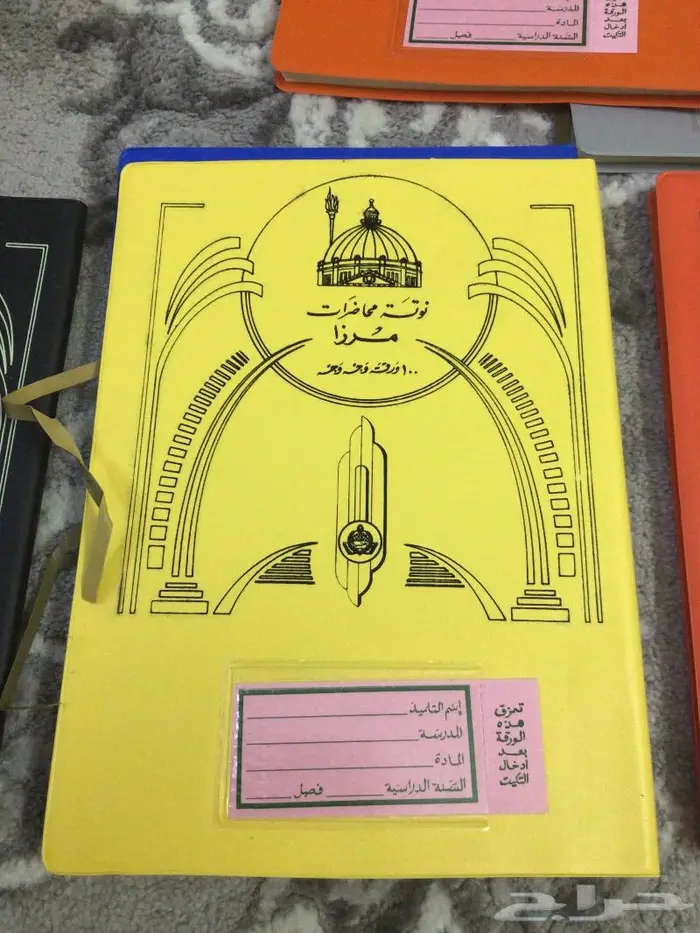 المدرسة
المادة
السنة الدراسية فصل
هذه
الورقة
بعد
ادخال
التكيت
نوتة محاضرات
مرزا
١٠٠ ورقة وجه وجه
إسم التلميذ
المدرسة
المادة
السنة الدراسية فصل
تمزق
هذه
الورقة
بعد
ادخال
التكيت
حراج